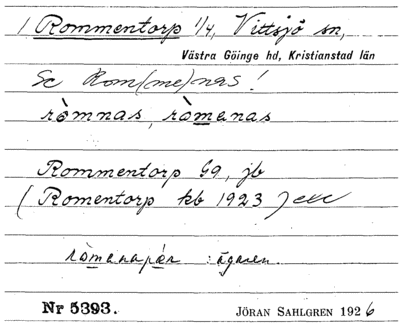 / Rommentorp 1/4, Vittsjö sn,
Västra Göinge hd, Kristianstad län
Se Rom(me)nas!
ròmnas, ròmenas
Rommentorp G9, jb
(Romentorp kb 1923)
ròmenapär : ägaren.
Nr 5393.
JÖRAN SAHLGREN 1926